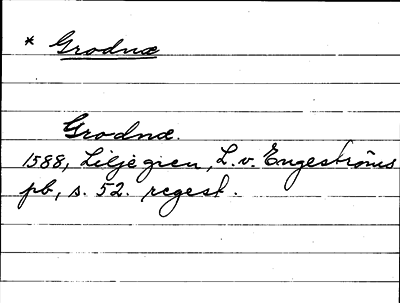 * Grodnæ
Grodnæ.
1588, Liljegren, L. v. Engeströms
pb, s. 52. regest.